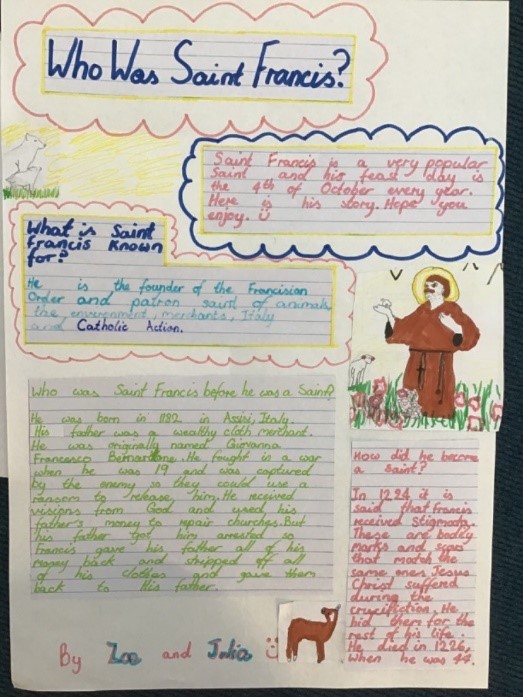 Who Was Saint Francis?
Saint Francis is a very popular
Saint and his feast day is
the 4th of October every year.
Here is his story. Hope you
enjoy.
What is Saint
Francis Known
for?
He is the founder of the Francisian
Order and patron saint of animals,
the environment, merchants, Italy
and Catholic Action.
Who was Saint Francis before he was a Saint?
He was born in 1182 in Assisi, Italy.
His father was a wealthy cloth merchant.
He was originally named Giovanna
Francesco Bernardone. He fought in a war
when he was 19 and was captured
by the enemy so they could use a
ransom to release him. He received
visions from God and used his
father's money to repair churches. But
his father got him arrested so
Francis gave his father all of his
money back and stripped off all
of his clothes and gave them
back to his father.
How did he become
a Saint?
In 1224 it is
said that Francis
received Stigmata.
These are bodily
marks and scars
that match the
same ones Jesus
Christ suffered
during the
crucifiction. He
hid them for the
rest of his life.
He died in 1226,
When he was 44.
By Zoe and Julia